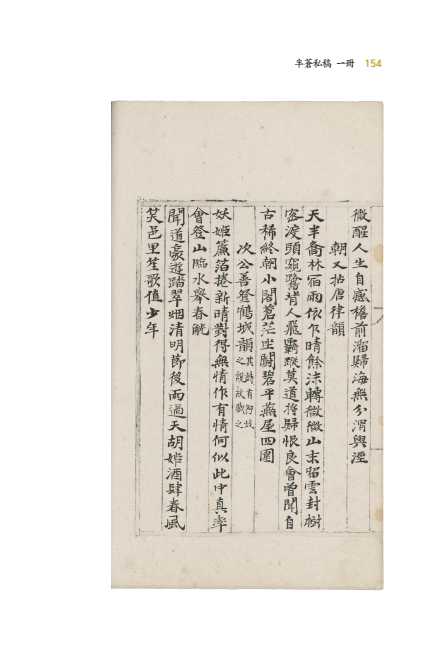 半蒼私稿 一冊 154
微醒人生自感檐前溜歸海無分渭與涇
朝又拈唐律韻
天半喬林宿雨依乍晴餘沫轉微微山末留雲封樹
密渡頭窺鷺背人飛羈蹤莫道將歸恨良會曾聞自
古稀終朝小閣蒼茫坐闢碧平蕪屋四圍
次公善登鶴城韻其詩有
之
妖姬簾箔捲新晴對得無情作有情何似此中真率
會登山臨水擧春觥
聞道豪遊踏翠烟清明節後雨過天胡姬酒肆春風
笑邑里笙歌値少年